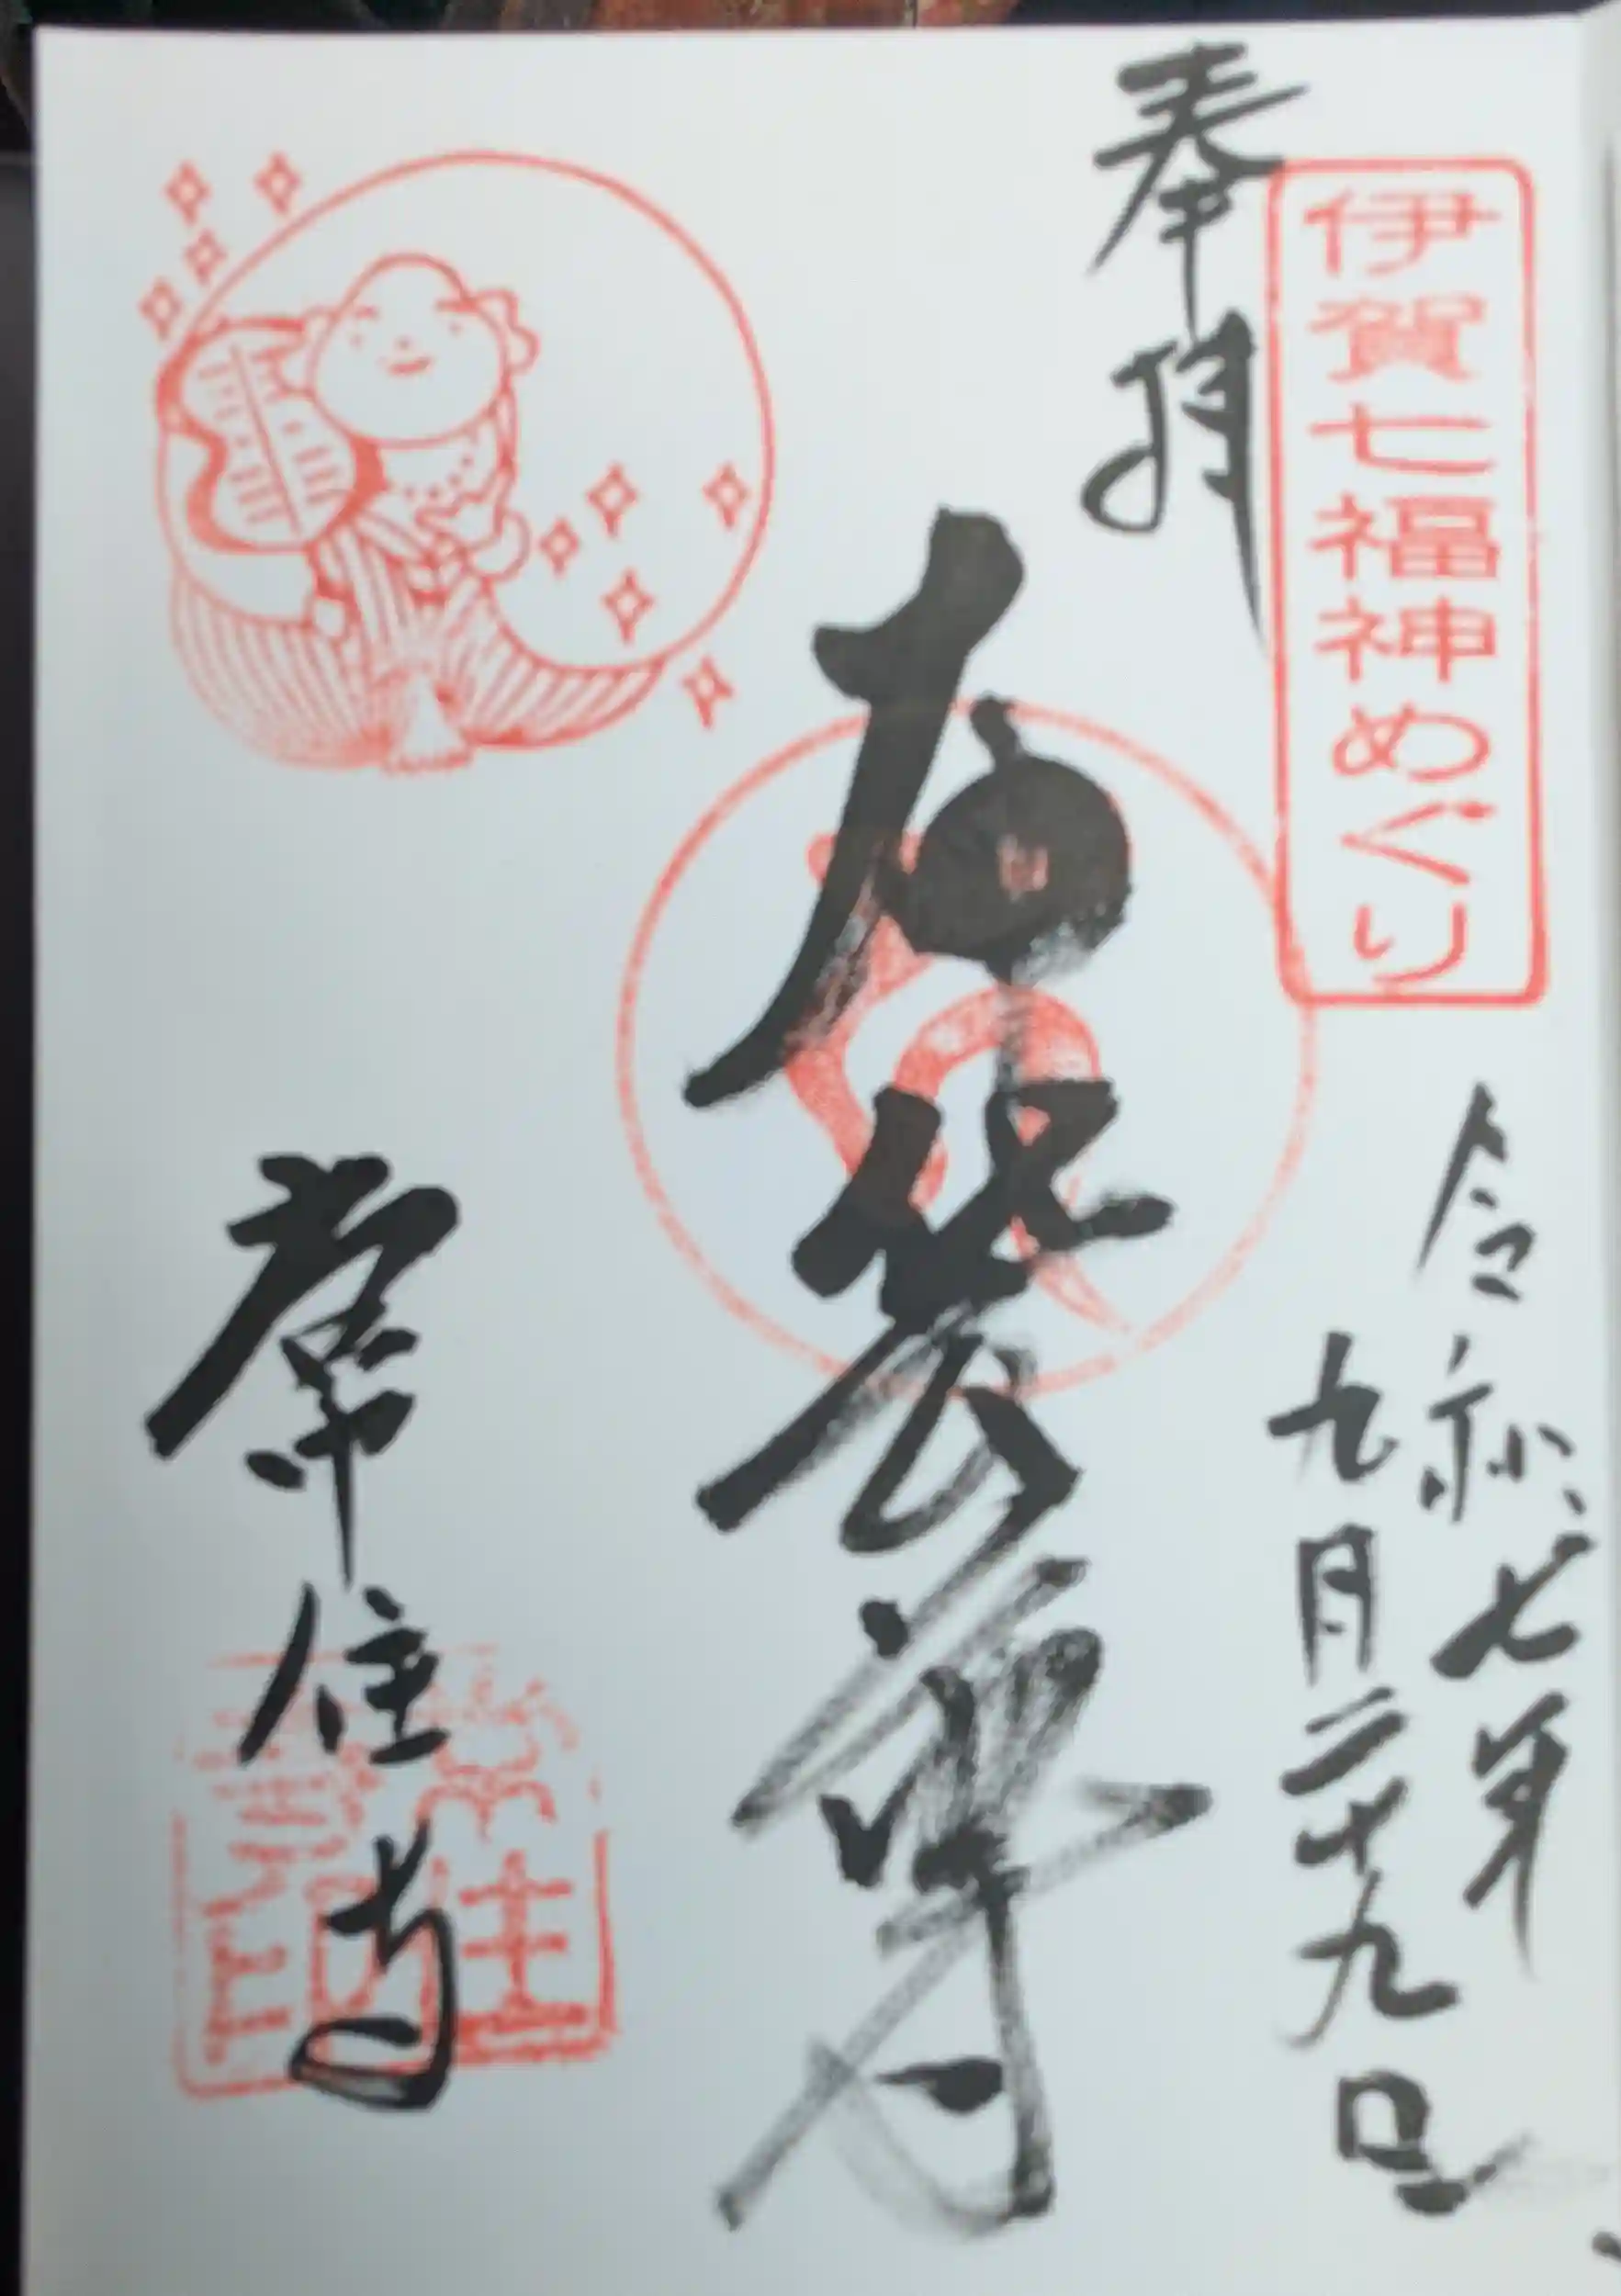 伊賀七福神めぐり
奉拝
令和七年
九月二十九日
寿老尊
常住寺